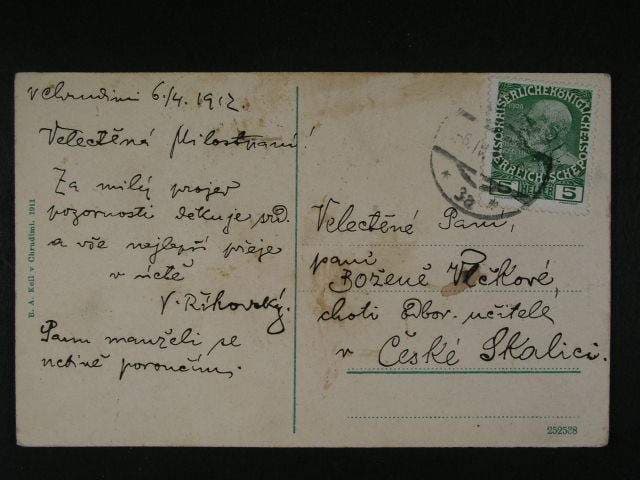 v Chrudimi 6./4. 1912.
Velectěná Milostpaní!
Za milý projev
pozornosti děkuje srd.
a vše nejlepší přeje
v úctě
V. Říkovský.
Panu manželi se
uctivě poroučím.
B. A. Keil v Chrudimi. 1911
KAISERLICHE KÖNIGLICHE
ÖSTERREICHISCHE
1908
5 HELLER 5
6./
* 3a *
Velectěné Paní,
paní
Boženě Vlčkové,
choti odbor. učitele
v České Skalici.
252538